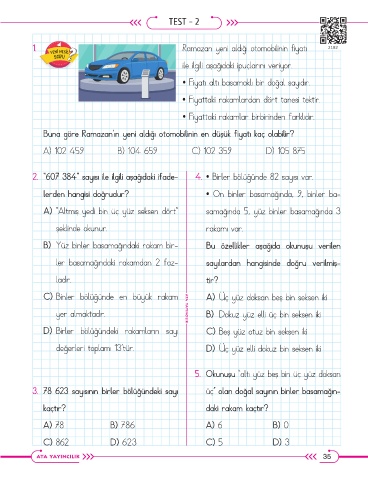 TEST - 2
2182
1.
YENİ NESİL
SORU
Ramazan yeni aldığı otomobilinin fiyatı
ile ilgili aşağıdaki ipuçlarını veriyor.
• Fiyatı altı basamaklı bir doğal sayıdır.
• Fiyattaki rakamlardan dört tanesi tektir.
• Fiyattaki rakamlar birbirinden farklıdır.
Buna göre Ramazan'ın yeni aldığı otomobilinin en düşük fiyatı kaç olabilir?
A) 102 459 B) 104 659 C) 102 359 D) 105 875
2. "607 384" sayısı ile ilgili aşağıdaki ifade-
lerden hangisi doğrudur?
A) "Altmış yedi bin üç yüz seksen dört"
şeklinde okunur.
B) Yüz binler basamağındaki rakam bin-
ler basamağındaki rakamdan 2 faz-
ladır.
C) Binler bölüğünde en büyük rakam
yer almaktadır.
D) Birler bölüğündeki rakamların sayı
değerleri toplamı 13'tür.
3. 78 623 sayısının birler bölüğündeki sayı
kaçtır?
A) 78 B) 786
C) 862 D) 623
4. • Birler bölüğünde 82 sayısı var.
• On binler basamağında, 9, binler ba-
samağında 5, yüz binler basamağında 3
rakamı var.
Bu özellikler aşağıda okunuşu verilen
sayılardan hangisinde doğru verilmiş-
tir?
A) Üç yüz doksan beş bin seksen iki
B) Dokuz yüz elli üç bin seksen iki
C) Beş yüz otuz bin seksen iki
D) Üç yüz elli dokuz bin seksen iki
5. Okunuşu "altı yüz beş bin üç yüz doksan
üç" olan doğal sayının binler basamağın-
daki rakam kaçtır?
A) 6 B) 0
C) 5 D) 3
ATA YAYINCILIK
35